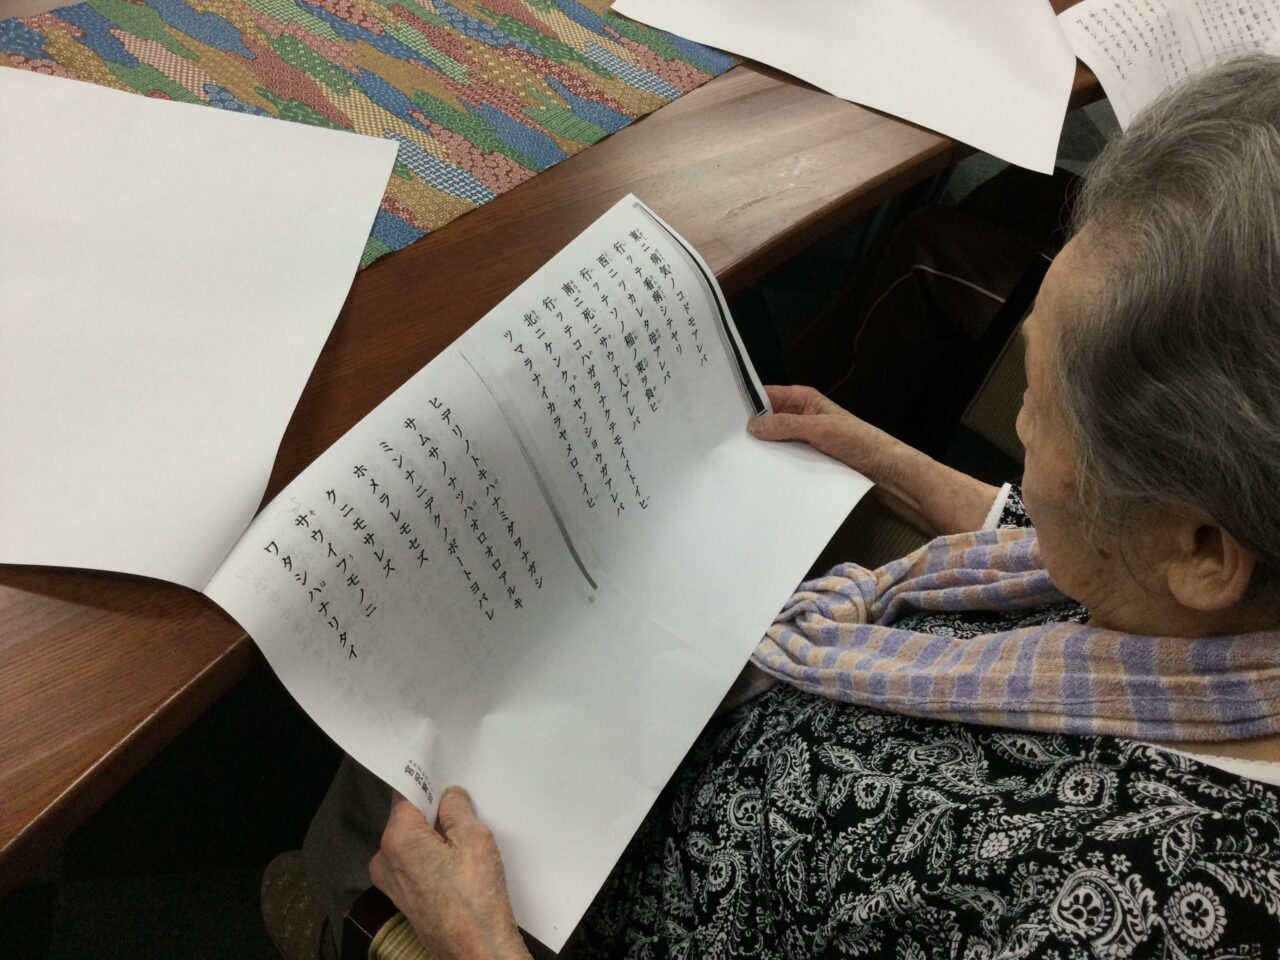 東ニ病気ノコドモアレバ
行ッテ看病シテヤリ
西ニツカレタ母アレバ
行ッテソノ稲ノ束ヲ負ヒ
南ニ死ニサウナ人アレバ
行ッテコハガラナクテモイイトイヒ
北ニケンクヮヤソショウガアレバ
ツマラナイカラヤメロトイヒ
ヒデリノトキハナミダヲナガシ
サムサノナツハオロオロアルキ
ミンナニデクノボートヨバレ
ホメラレモセズ
クニモサレズ
サウイフモノニ
ワタシハナリタイ
宮沢賢治